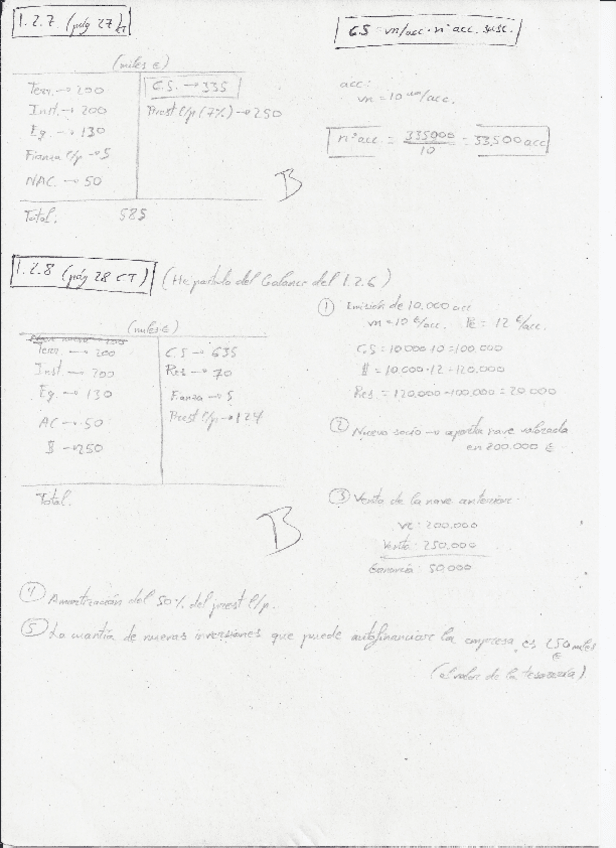 1.2.7 (pág 27) CT
CS = vn/acc · nº acc. susc.
(miles €)
Terr. → 200
Inst. → 200
Eq. → 130
Fianza l/p → 5
NAC. → 50
C.S. → 335
Prest l/p (7%) → 250
Total: 585
B
acc:
vn = 10 /acc.
nº acc. = 335000 / 10 = 33.500 acc
1.2.8 (pág 28 CT) (He partido del balance del 1.2.6)
(miles €)
Terr. → 200
Inst → 200
Eq. → 130
AC → 50
$ → 250
CS → 635
Res → 70
Fianza → 5
Prest l/p → 124
Total.
B
① Emisión de 10.000 acc
vn = 10 €/acc. Pe = 12 €/acc.
CS = 10.000 · 10 = 100.000
$ = 10.000 · 12 = 120.000
Res = 120.000 - 100.000 = 20.000
② Nuevo socio → aporta nave valorada
en 200.000 €
③ Venta de la nave anterior:
Vc: 200.000
Venta: 250.000
Ganancia: 50.000
④ Amortización del 50% del prest l/p.
⑤ La cuantía de nuevas inversiones que puede autofinanciar la empresa es 250 miles
€
(el valor de la tesorería)